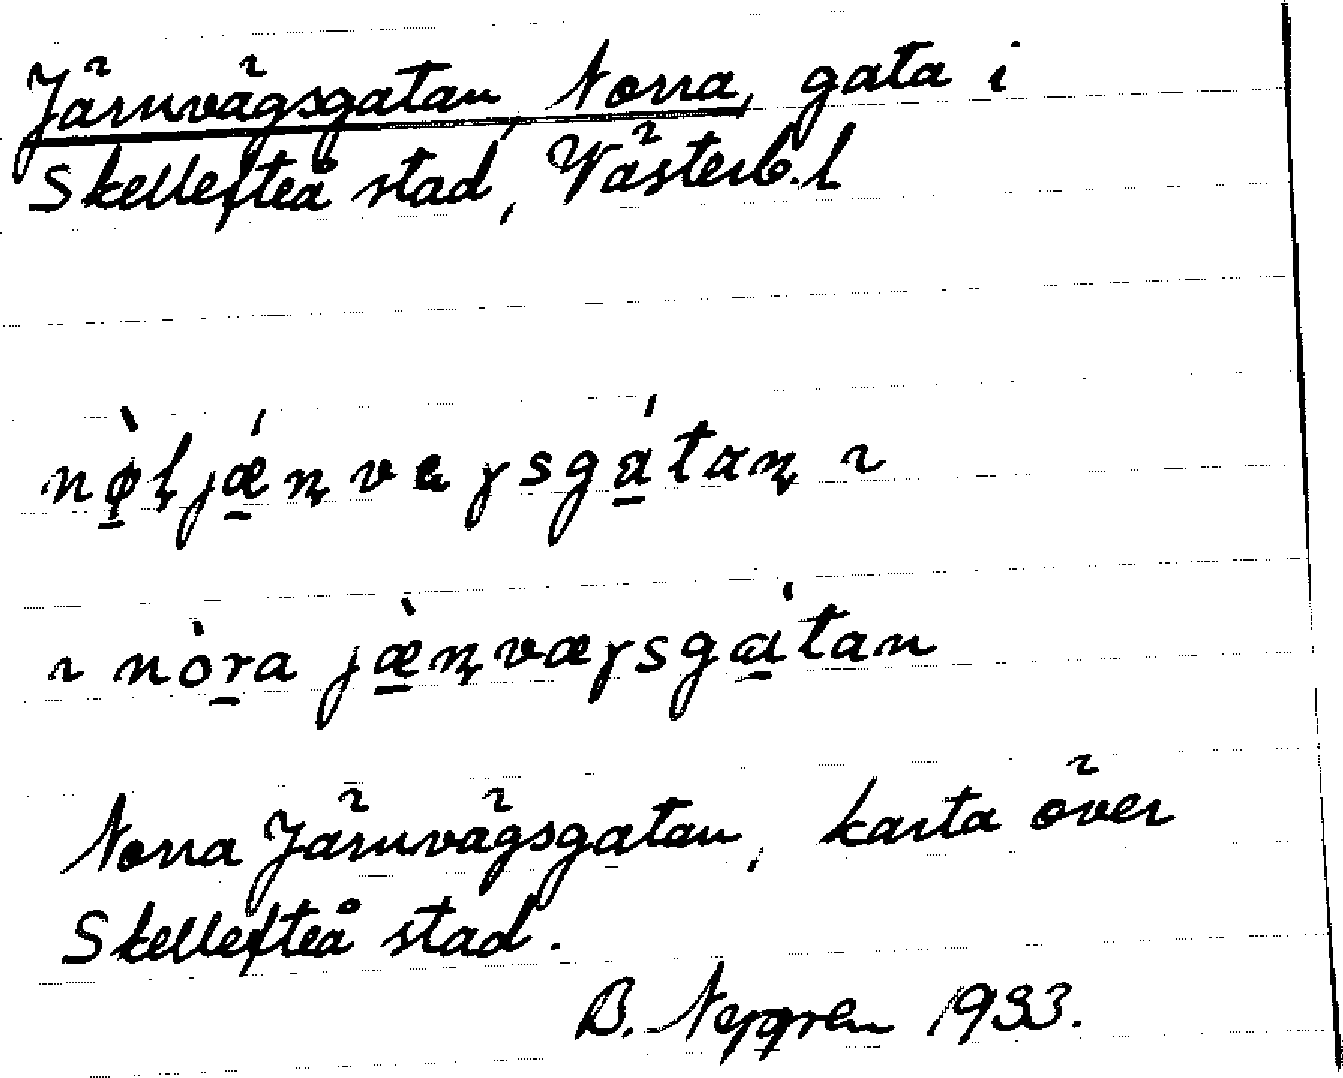 Järnvägsgatan, Norra, gata i
Skellefteå stad, Västerb. l
nø̱̀ɭjǽ̱ɳvɐɣsgá̱taɳ ı
ı nòṟa jæ̱̀ɳvæɣsgà̱tan
Norra Järnvägsgatan, karta över
Skellefteå stad.
B. 1933.